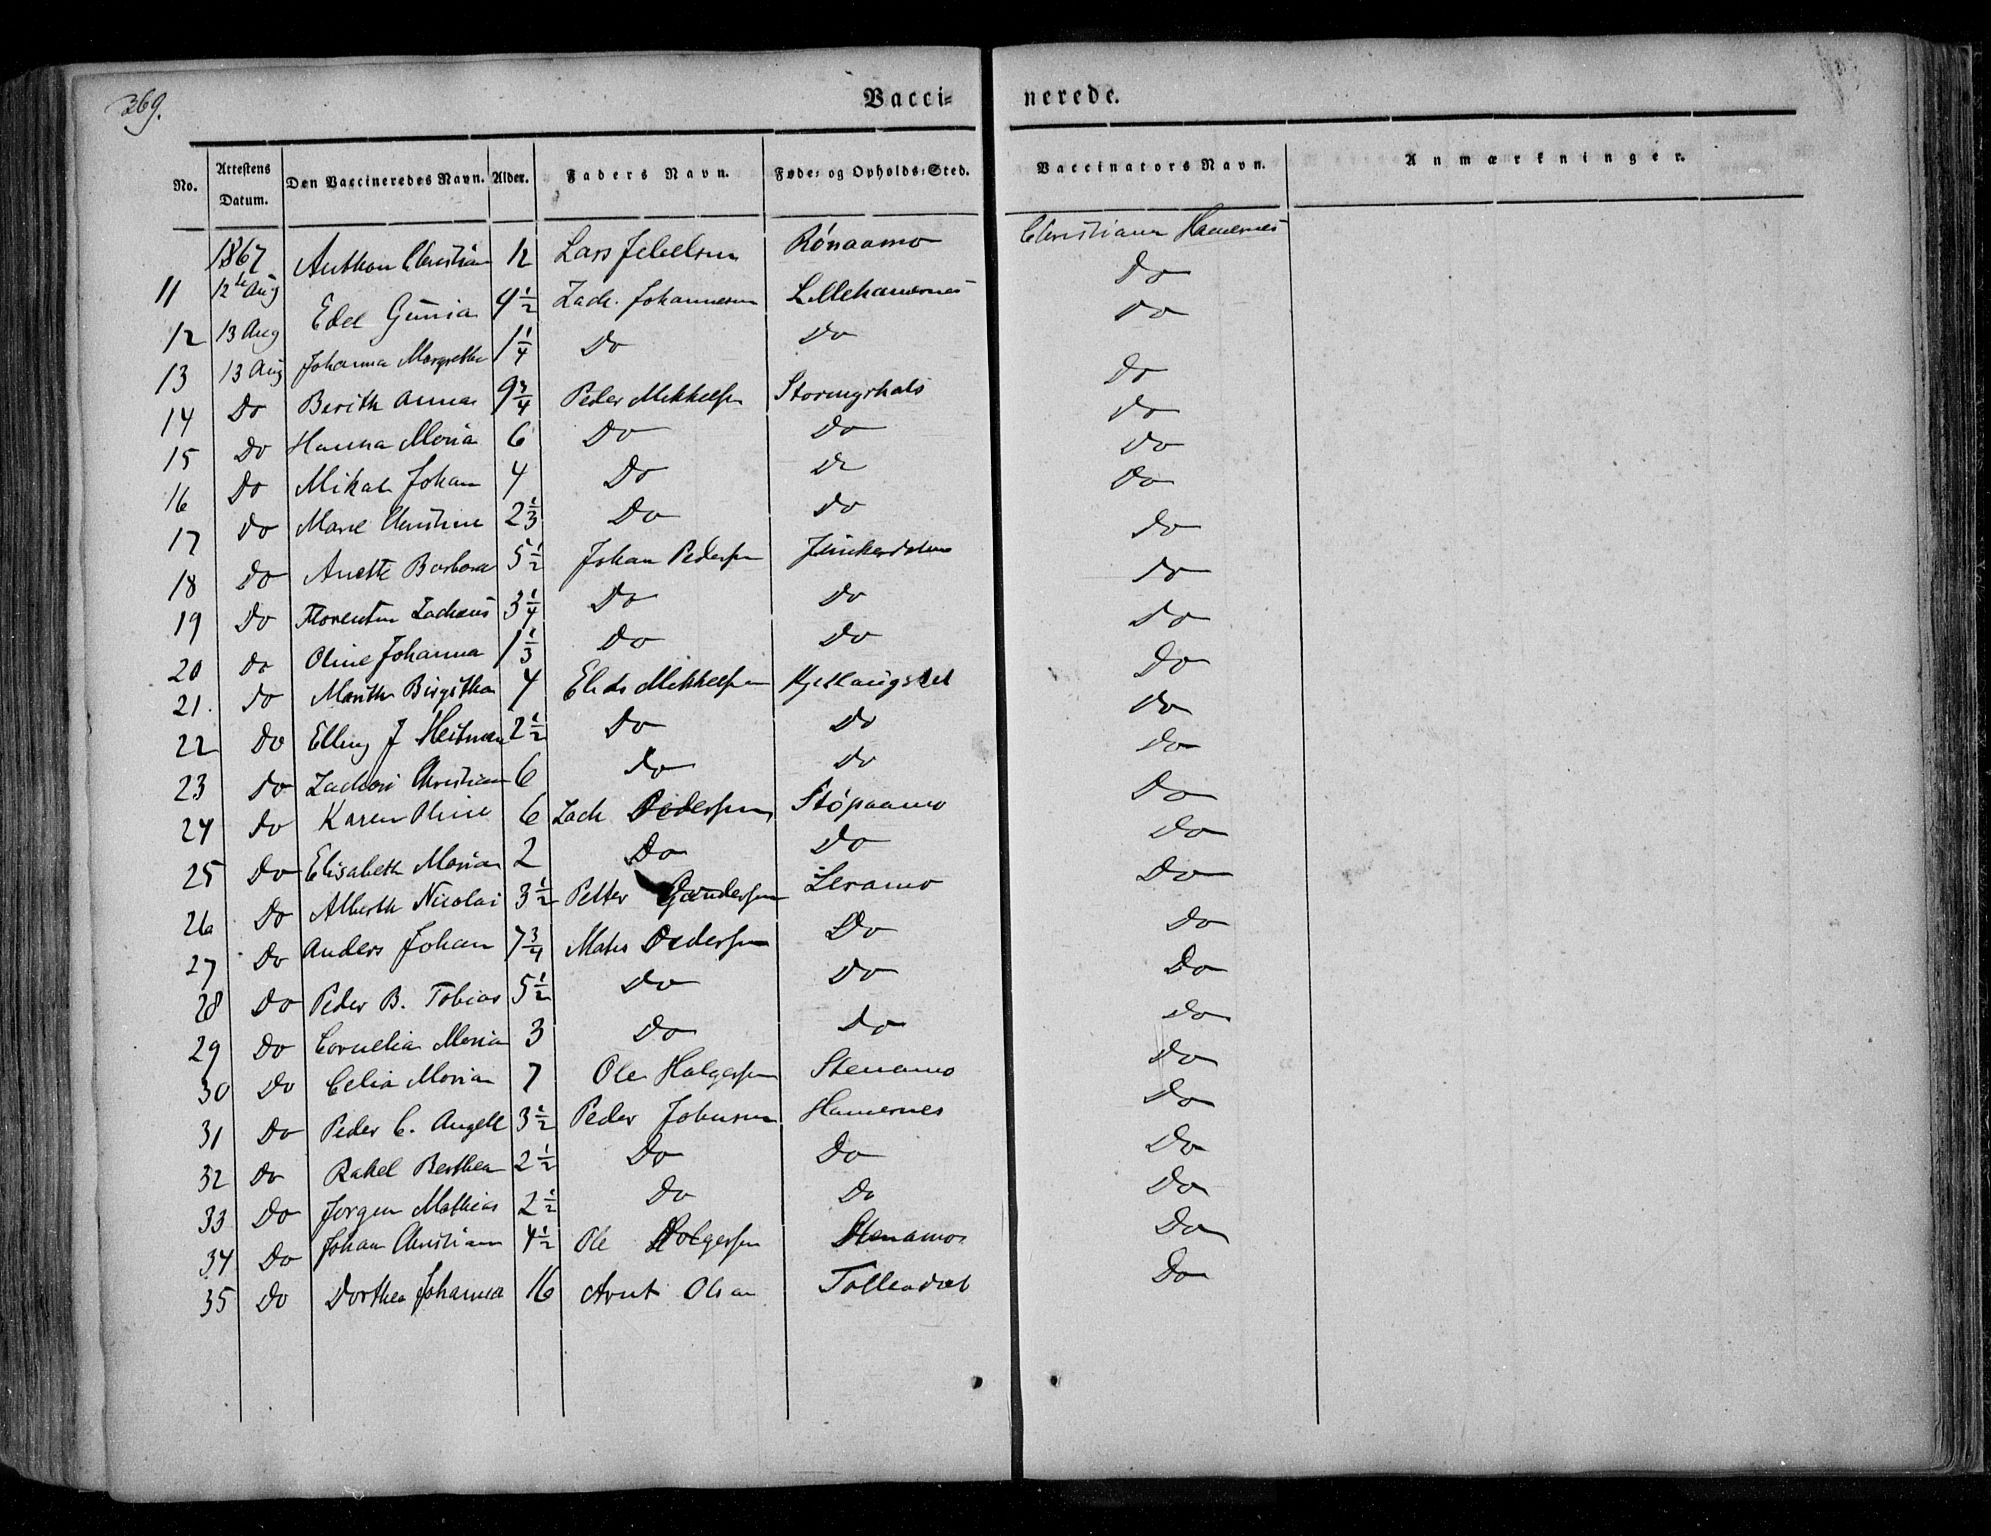 369.
Vacci= nerede.
No. Attestens Datum. Den Vaccineredes Navn. Alder. Faders Navn. Føde= og Opholds=Sted. Vaccinators Navn. Anmærkninger.
1867
11 12te Aug Anthon Christian 12 Lars Jebelsen Rönaamo Christian Hamernes
12 13 Aug Edel Gunia 4 1/2 Zach. Johannesen Lillehamernes Do
13 13 Aug Johanna Margrethe 1 1/4 Do Do Do
14 Do Berith Anna 9 3/4 Peder Mikkelsen Stormyrhals Do
15 Do Hanna Maria 6 Do Do Do
16 Do Mikal Johan 4 Do Do Do
17 Do Marie Christine 2 2/3 Do Do Do
18 Do Anette Barbara 5 1/2 Johan Pedersen Junkerdalen Do
19 Do Florentin Zacheus 3 1/4 Do Do Do
20 Do Oline Johanna 1 1/3 Do Do Do
21. Do Marith Birgitha 4 Elids Mikkelsen Do
22 Do Elling J Heitman 2 1/2 Do Do Do
23 Do Zachari Christian 6 Do Do Do
24 Do Karen Oline 6 Zach Pedersen Stöpaamo Do
25 Do Elisabeth Maria 2 Do Do Do
26 Do Alberth Nicolai 3 1/2 Petter Leramo Do
27 Do Anders Johan 7 3/4 Mats Pedersen Do Do
28 Do Peder B. Tobias 5 1/2 Do Do Do
29 Do Cornelia Maria 3 Do Do Do
30 Do Celia Maria 7 Ole Holgersen Stenamo Do
31 Do Peder C. Angell 3 1/2 Peder Johnsen Hamernes Do
32 Do Rakel Berthea 2 1/2 Do Do Do
33 Do Jorgen Mathias 2 1/2 Do Do Do
34 Do Johan Christian 4 1/2 Ole Holgersen Stenamo Do
35 Do Dorthea Johanna 16 Arnt Olsen Tollaadal Do